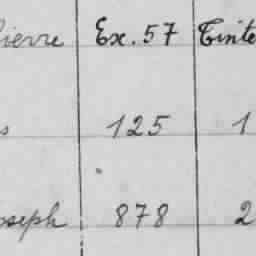 ierre Ex. 57 Tinte
s 125 1
oseph 878 2